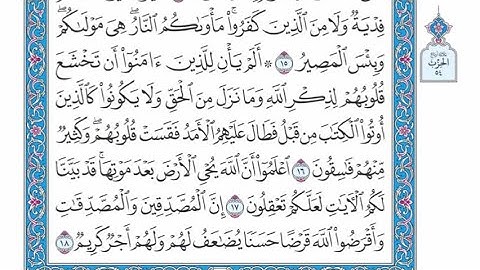 فِدْيَةٌ وَلَا مِنَ الَّذِينَ كَفَرُوا۟ ۚ مَأْوَىٰكُمُ النَّارُ ۖ هِىَ مَوْلَىٰكُمْ ۖ
وَبِئْسَ الْمَصِيرُ ١٥ ۞ أَلَمْ يَأْنِ لِلَّذِينَ ءَامَنُوٓا۟ أَن تَخْشَعَ
قُلُوبُهُمْ لِذِكْرِ اللَّهِ وَمَا نَزَلَ مِنَ الْحَقِّ وَلَا يَكُونُوا۟ كَالَّذِينَ
أُوتُوا۟ الْكِتَٰبَ مِن قَبْلُ فَطَالَ عَلَيْهِمُ الْأَمَدُ فَقَسَتْ قُلُوبُهُمْ ۖ وَكَثِيرٌ
مِّنْهُمْ فَٰسِقُونَ ١٦ اعْلَمُوٓا۟ أَنَّ اللَّهَ يُحْىِ الْأَرْضَ بَعْدَ مَوْتِهَا ۚ قَدْ بَيَّنَّا
لَكُمُ الْءَايَٰتِ لَعَلَّكُمْ تَعْقِلُونَ ١٧ إِنَّ الْمُصَّدِّقِينَ وَالْمُصَّدِّقَٰتِ
وَأَقْرَضُوا۟ اللَّهَ قَرْضًا حَسَنًا يُضَٰعَفُ لَهُمْ وَلَهُمْ أَجْرٌ كَرِيمٌ ١٨
الحزب
٥٤